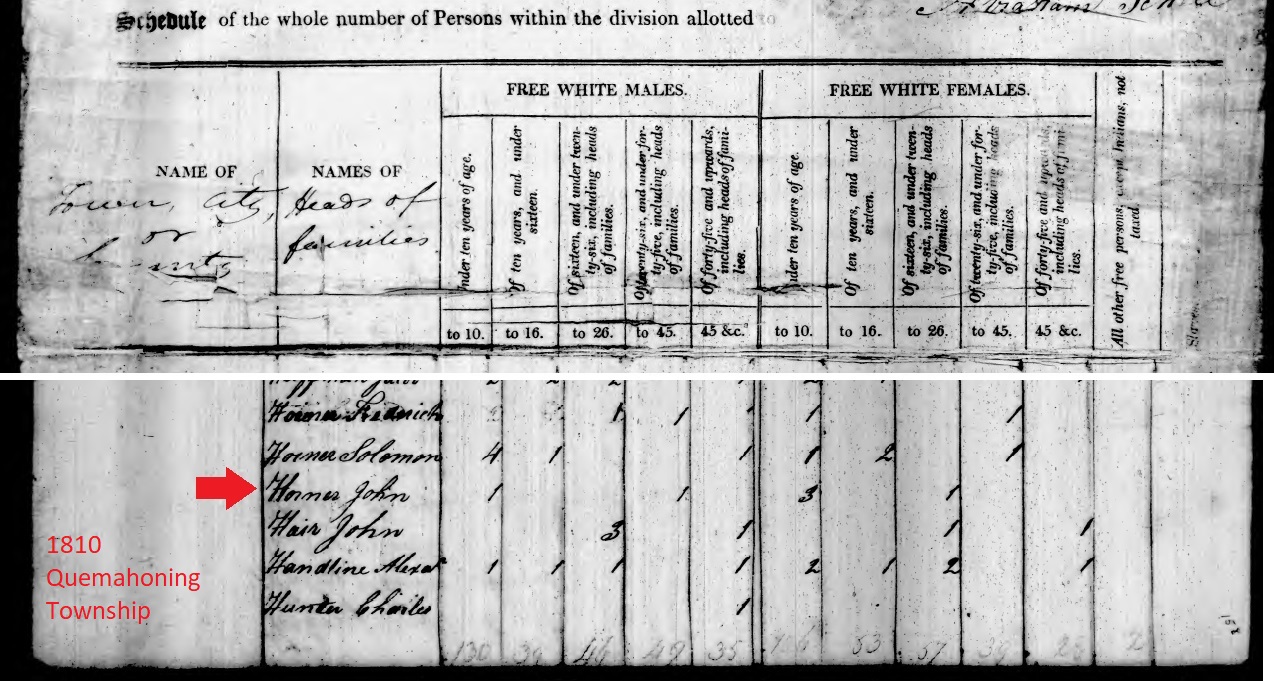 Schedule of the whole number of Persons within the division allotted to
NAME OF
Town, City,
or
County
NAMES OF
Heads of
families
FREE WHITE MALES.
Under ten years of age.
Of ten years, and under sixteen.
Of sixteen, and under twen-
ty-six, including heads
of families.
Of twenty-six, and under for-
ty-five, including heads
of families.
Of forty-five and upwards,
including heads of fami-
lies.
to 10. to 16. to 26. to 45. 45 &c.
FREE WHITE FEMALES.
Under ten years of age.
Of ten years, and under sixteen.
Of sixteen, and under twen-
ty-six, including heads
of families.
Of twenty-six, and under for-
ty-five, including heads
of families.
Of forty-five and upwards,
including heads of fami-
lies.
to 10. to 16. to 26. to 45. 45 &c.
All other free persons, except Indians, not taxed.
Horner Fredrick 1 1 1 1 1
Horner Solomon 4 1 1 1 2 1
Horner John 1 1 3 1
Hair John 3 1 1 1
Handline Alexdr 1 1 1 1 2 1 2 1
Hunter Charles 1
130 39 46 48 35 53 57 39 28 2
1810
Quemahoning
Township